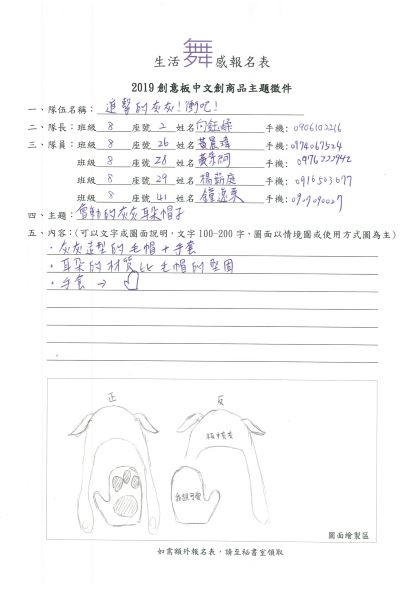 生活舞感報名表
2019創意板中文創商品主題徵件
一、隊伍名稱：進擊的灰灰！衝吧！
二、隊長：班級 8 座號 2 姓名 手機：0906102216
三、隊員：班級 8 座號 26 姓名 手機：0974067524
班級 8 座號 28 姓名 手機：0976222942
班級 8 座號 29 姓名 楊 庭 手機：0916503077
班級 8 座號 41 姓名 手機：0909090027
四、主題：會動的灰灰耳朵帽子
五、內容：(可以文字或圖面說明，文字 100-200 字，圖面以情境圖或使用方式圖為主)
·灰灰造型的毛帽+手套
·耳朵的材質比毛帽的堅固
·手套→
正 反
板中茁茁
我超可愛
圖面繪製區
如需額外報名表，請至秘書室領取